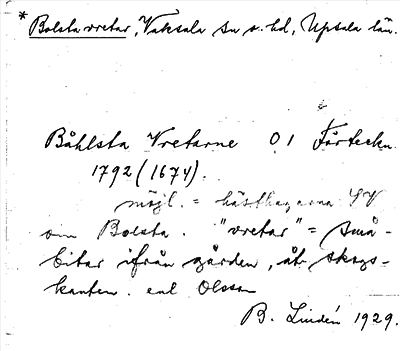 * Bolsta vretar, Vaksala sn o. hd, Upsala län.
Båhlsta Vretarne 0 1 Förteckn
1792 (1674).
möjl. = hästhagarna SV
om Bolsta. "vretar" = små-
bitar ifrån gården, åt skogs-
kanten. enl Olsson
B. Lindén 1929.